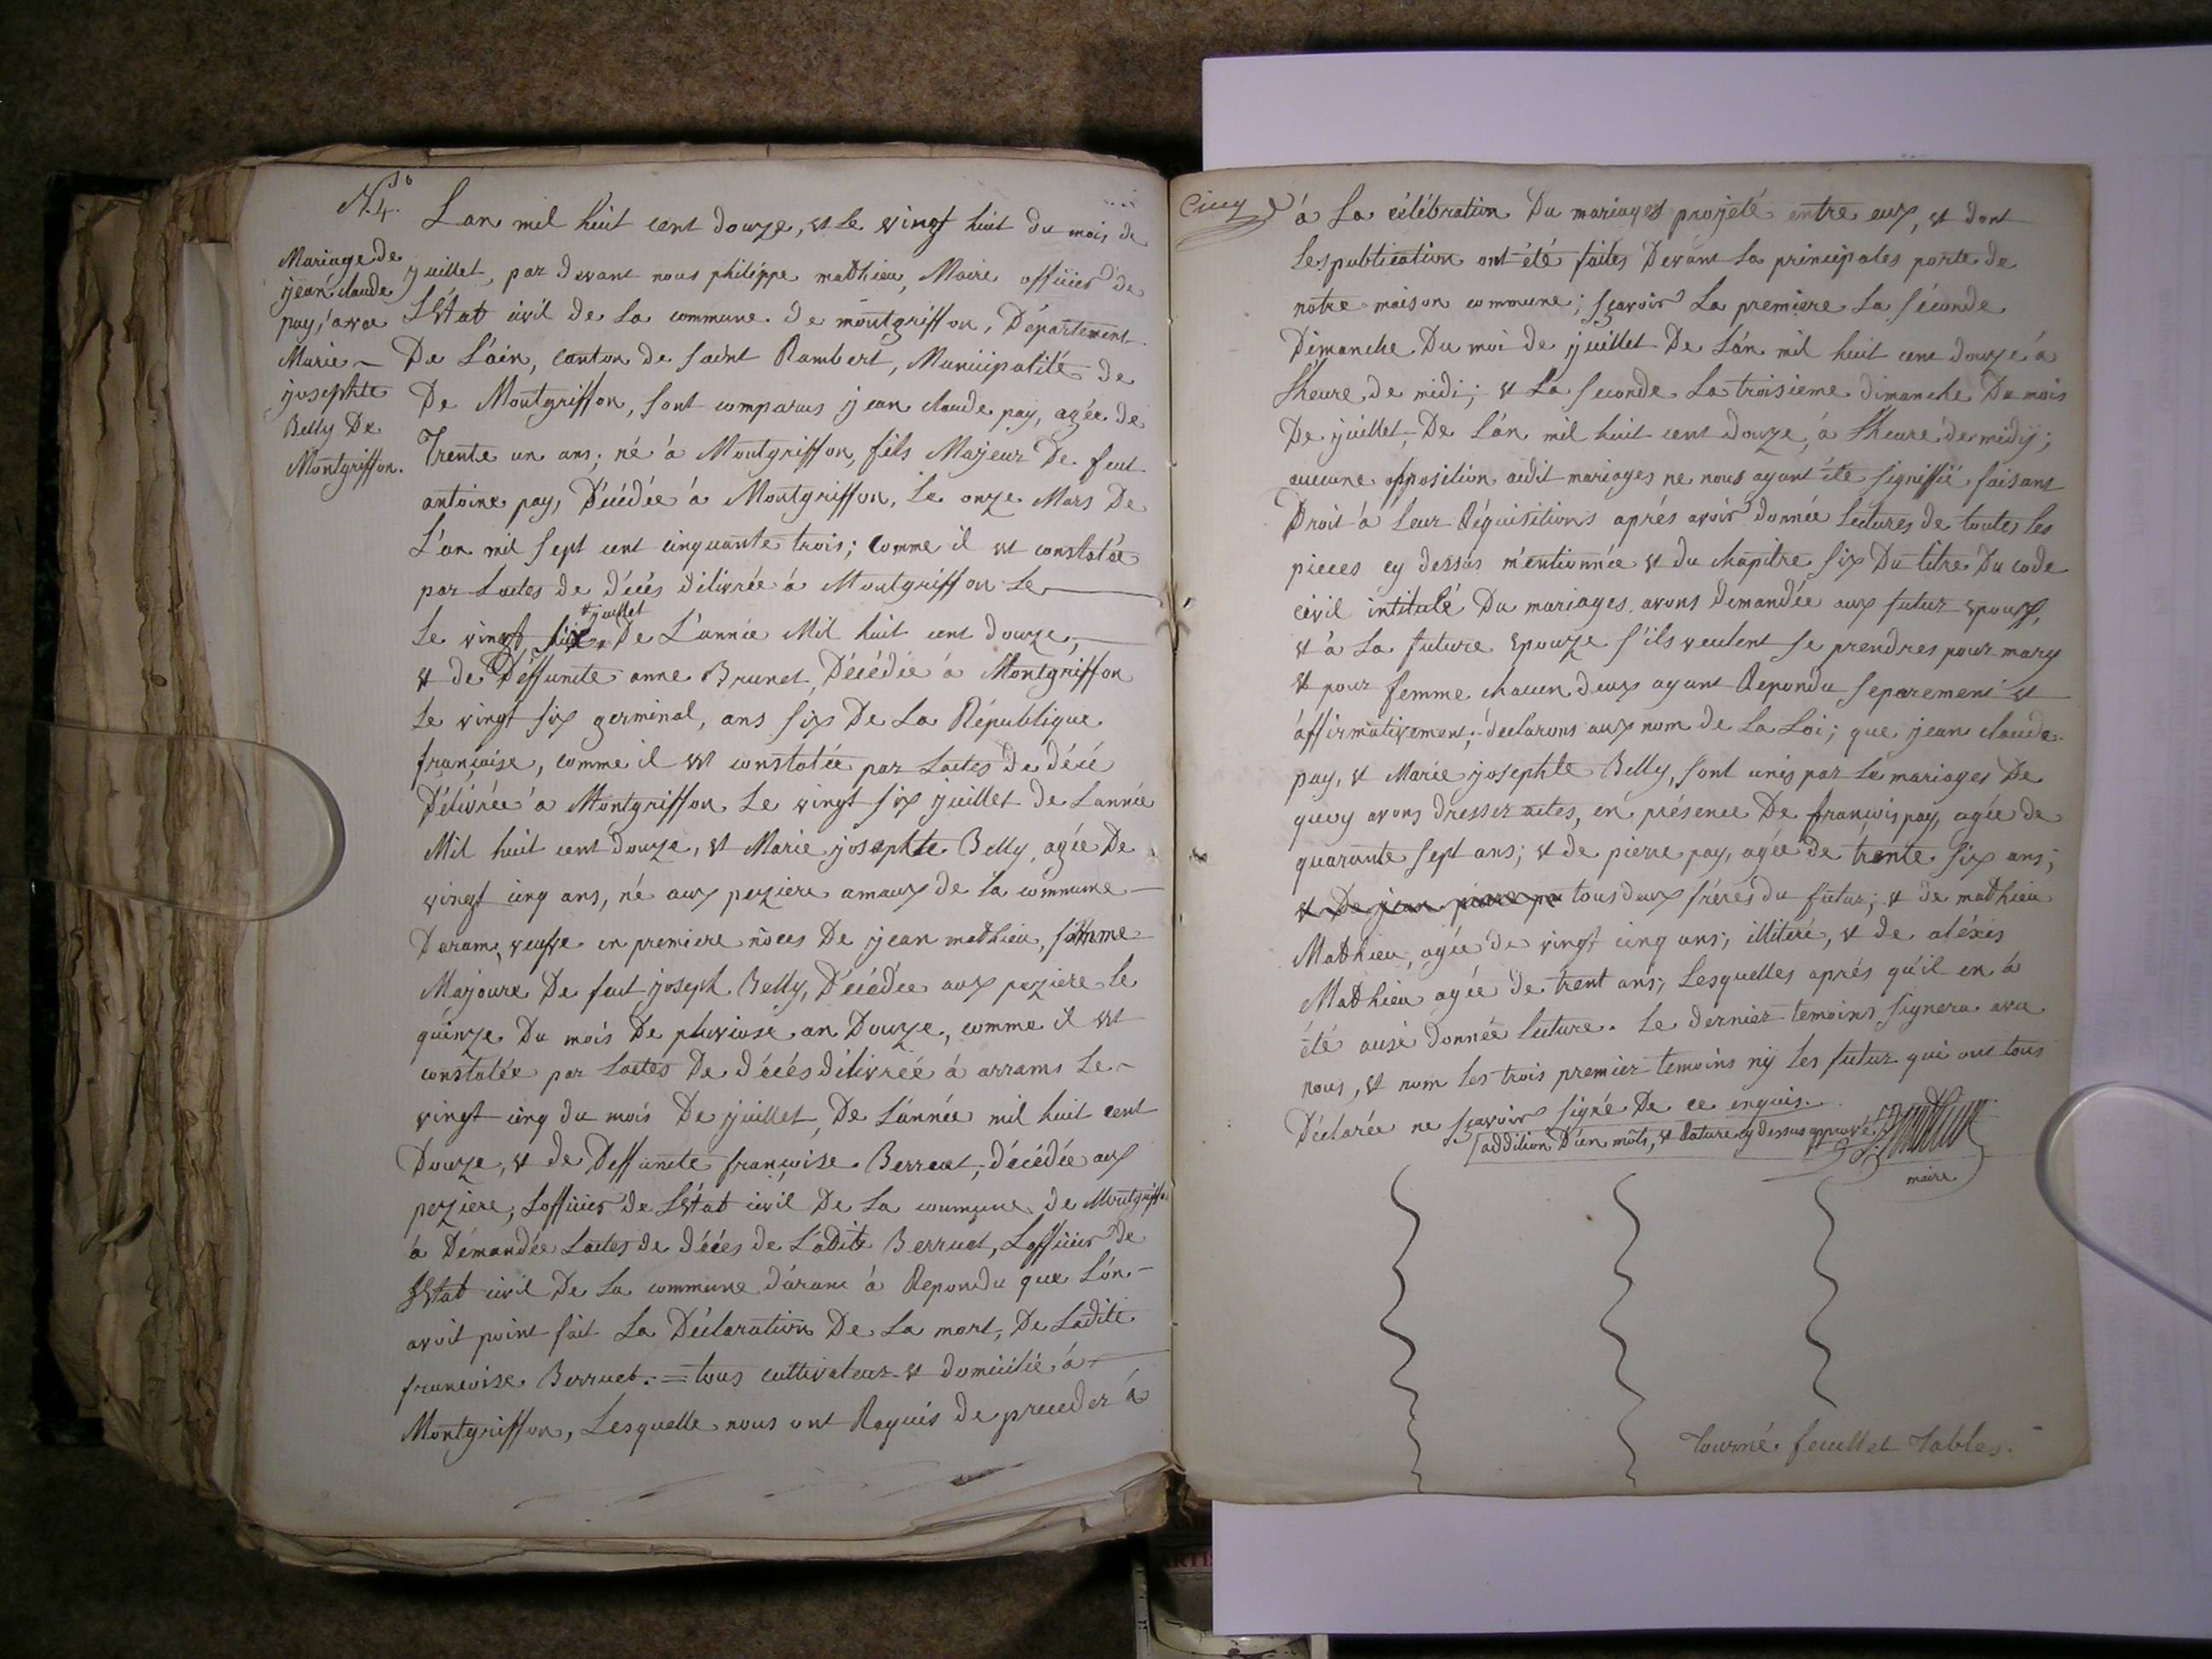 N.º 4.
Mariage de
jean claude
pay, avec
Marie –
josephte
Belly De
Montgriffon.
Lan mil huit cent douze, et le vingt huit du mois de
juillet, par devant nous philippe mathieu, Maire officier de
L'Etat civil de la commune de montgriffon, Département
De L'áin, canton de saint Rambert, Municipalité de
De Montgriffon, sont comparus jean claude pay, agée de
Trente un ans; né à Montgriffon, fils Majeur De feut
antoine pay, Décédée à Montgriffon, le onze Mars De
L'an mil sept cent cinquante trois; comme il est constatée
par Lactes de décés délivrée à Montgriffon le
le vingt six juillet De L'année Mil huit cent douze,
et de Déffuncte anne Brunet, Décédée à Montgriffon
le vingt six germinal, ans six De La République
françoise, comme il est constatée par Lactes de décé
Délivrée à Montgriffon le vingt six juillet de Lannée
Mil huit cent douze, et Marie josephte Belly, agée De
vingt cinq ans, né aux peziere amaux de la commune
Daram, veufve en premiere nôces De jean mathieu,
Majeure De feut joseph Belly, Décédée aux peziere le
quinze Du mois De pluviose an Douze, comme il est
constatée par Lactes De décés délivréé à arrams le –
vingt cinq du mois De juillet, De L'année mil huit cent
Douze, et de Deffuncte françoise Berruet, décédée aux
peziere, Lofficier de L'Etat civil De La commune de Montgriffon
à Démandée Lactes de décés de Ladite Berruet, Lofficier de
L'Etat civil De La commune d'áranc à Repondu que L'ón –
avoit point fait La Déclaration De La mort, De Ladite
francoise Berruet. = tous cultivateur et domicilié à
Montgriffon, Lesquelle nous ont Requis de proceder à
Cinq
à La célébration Du mariages projeté entre eux, et dont
les publication ont été faites Devant La principales porte de
notre maison commune; sçavoir La premiere La séconde
Dimanche Du moi de juillet De L'án mil huit cent douze à
L'heure de midi; et La seconde La troisieme dimanche Du mois
De juillet, De L'án mil huit cent douze, à L'heure de midy;
aucune opposition audit mariages ne nous ayant été signiffié faisant
Droit à Leur Réquisitions aprés avoir donnée lectures de toute les
pieces cy dessus mentionnée et du chapitre six Du titre Du code
civil intitulé Du mariages. avons demandée aux futur epoux,
et à La future epouze s'ils veulent se prendres pour mary
et pour femme chacun deux ayant Repondu separement et
áffirmativement; déclarons aux nom de La Loi; que jean claude
pay, et Marie josephte Belly, sont unis par le mariages De
quoy avons dresser actes, en présence De françois pay, agée de
quarante sept ans; et de pierre pay, agée de trente six ans;
et De jean pierre pa tous deux fréres du futur; et de mathieu
Mathieu, agée de vingt cinq ans; illiteré, et de aléxis
Mathieu agée de trent ans; Lesquelles aprés qu'il en à
été ausi donnée lecture. Le dernier temoins signera avec
nous, et nom les trois premier temoins ny les futur qui ont tous
Déclarée ne sçavoir signée De ce enquis.
addition D'ún môts, et Rature cy dessus approuvé. P. Mathieu
maire
Tourné feuillet Tables.